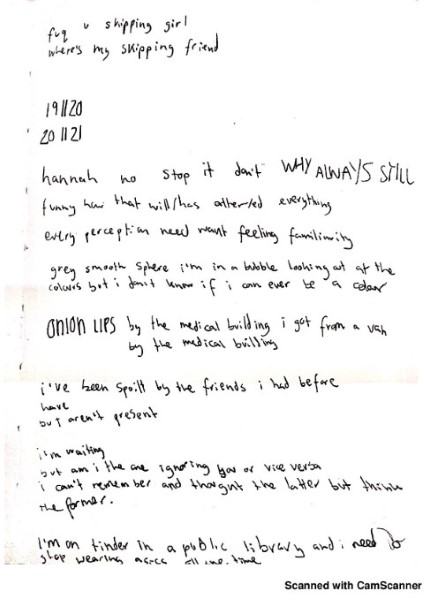 fuq u skipping girl
where's my skipping friend
19 11 20
20 11 21
hannah no stop it don't WHY ALWAYS STILL
funny how that will/has altered everything
every perception need want feeling familiarity
grey smooth sphere i'm in a bubble looking out at the
colours but i don't know if i can ever be a colour
ONION LIPS by the medical building i got from a van
by the medical building
i've been spoilt by the friends i had before
have
but aren't present
i'm waiting
but am i the one ignoring you or vice versa
i can't remember and thought the latter but think
the former.
I'm on tinder in a public library and i need to
stop wearing all the time
Scanned with CamScanner